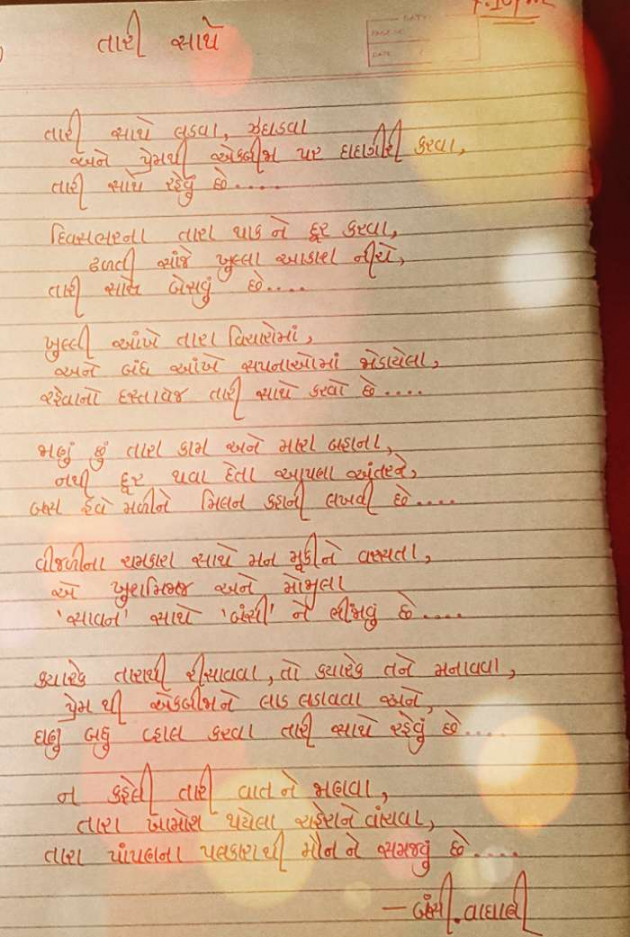 તારી સાથે
DATE
તારી સાથે લડવા, ઝઘડવા
અને પ્રેમથી એકબીજા પર દાદાગીરી કરવા,
તારી સાથે રહેવું છે....
દિવસભરના તારા થાક ને દૂર કરવા,
ઢળતી સાંજે ખુલ્લા આકાશ નીચે,
તારી સાથે બેસવું છે....
ખુલ્લી આંખે તારા વિચારોમાં,
અને બંધ આંખે સપનાઓમાં જોડાયેલા,
રહેવાનો દસ્તાવેજ તારી સાથે કરવો છે....
જાણું છું તારા કામ અને મારા બહાના,
નથી દૂર થવા દેતા આપણા અંતરને,
બસ હવે મળીને મિલન કહાની લખવી છે....
વીજળીના ચમકારા સાથે મન મૂકીને વરસતા,
એ ખુશમિજાજ અને મોજીલા
'સાવન' સાથે 'બંસી' ને ભીંજાવું છે....
ક્યારેક તારાથી રીસાવવા, તો ક્યારેક તને મનાવવા,
પ્રેમ થી એકબીજાને લાડ લડાવવા અને,
ઘણુ બધું વ્હાલ કરવા તારી સાથે રહેવું છે....
ન કહેલી તારી વાત ને જાણવા,
તારા ખામોશ થયેલા ચહેરાને વાંચવા,
તારા પાંપણના પલકારાથી મૌન ને સમજવું છે....
- બંસી. વાઘાણી